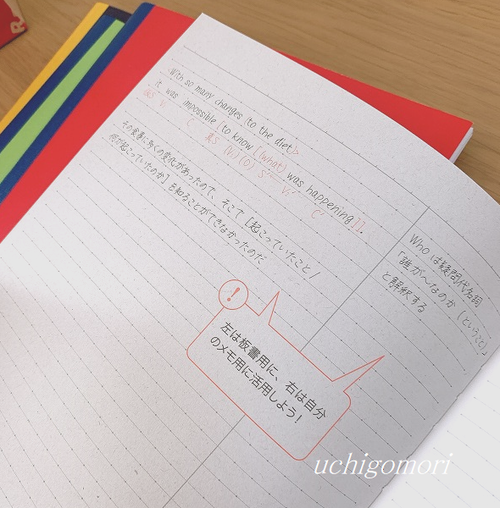 With so many changes (to the diet),
it was impossible (to know [(what) was happening]).
(S) V C 真S (V) (O) S' V' C'
その食事に多くの変化があったので、そこで[起こっていたこと/
何が起こっていたのか]を知ることができなかったのだ
Whoは疑問代名詞
「誰が〜なのか(ということ)」
と解釈する
!
左は板書用に、右は自分
のメモ用に活用しよう!
uchigomori